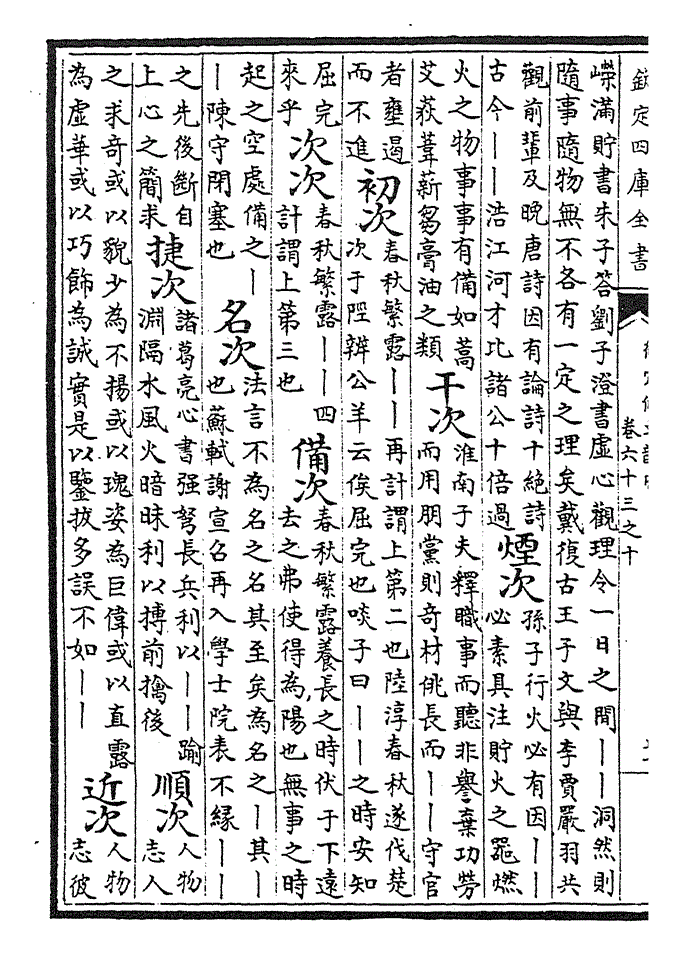 欽定四庫全書
卷六十三之十
嶸滿貯書朱子答劉子澄書虛心觀理令一日之間丨丨洞然則
隨事隨物無不各有一定之理矣戴復古王子文與李賈嚴羽共
觀前輩及晚唐詩因有論詩十絕詩
古今丨丨浩江河才比諸公十倍過
煙次
孫子行火必有因丨丨
必素具注貯火之噐燃
火之物事事有備如蒿
艾荻葦薪芻膏油之類
干次
淮南子夫釋職事而聽非譽棄功勞
而用朋黨則奇材佻長而丨丨守官
者壅遏
而不進
初次
春秋繁露丨丨再計謂上第二也陸淳春秋遂伐楚
次于陘辨公羊云俟屈完也啖子曰丨丨之時安知
屈完
來乎
次次
春秋繁露丨丨四
計謂上第三也
備次
春秋繁露養長之時伏于下遠
去之弗使得為陽也無事之時
起之空處備之丨
丨陳守閉塞也
名次
法言不為名之名其至矣為名之丨其丨
也蘇軾謝宣召再入學士院表不緣丨丨
之先後斷自
上心之簡求
捷次
諸葛亮心書强弩長兵利以丨丨踰
淵隔水風火暗昧利以搏前擒後
順次
人物
志人
之求奇或以貌少為不揚或以瑰姿為巨偉或以直露
為虛華或以巧飾為誠實是以鑒拔多誤不如丨丨
近次
人物
志彼